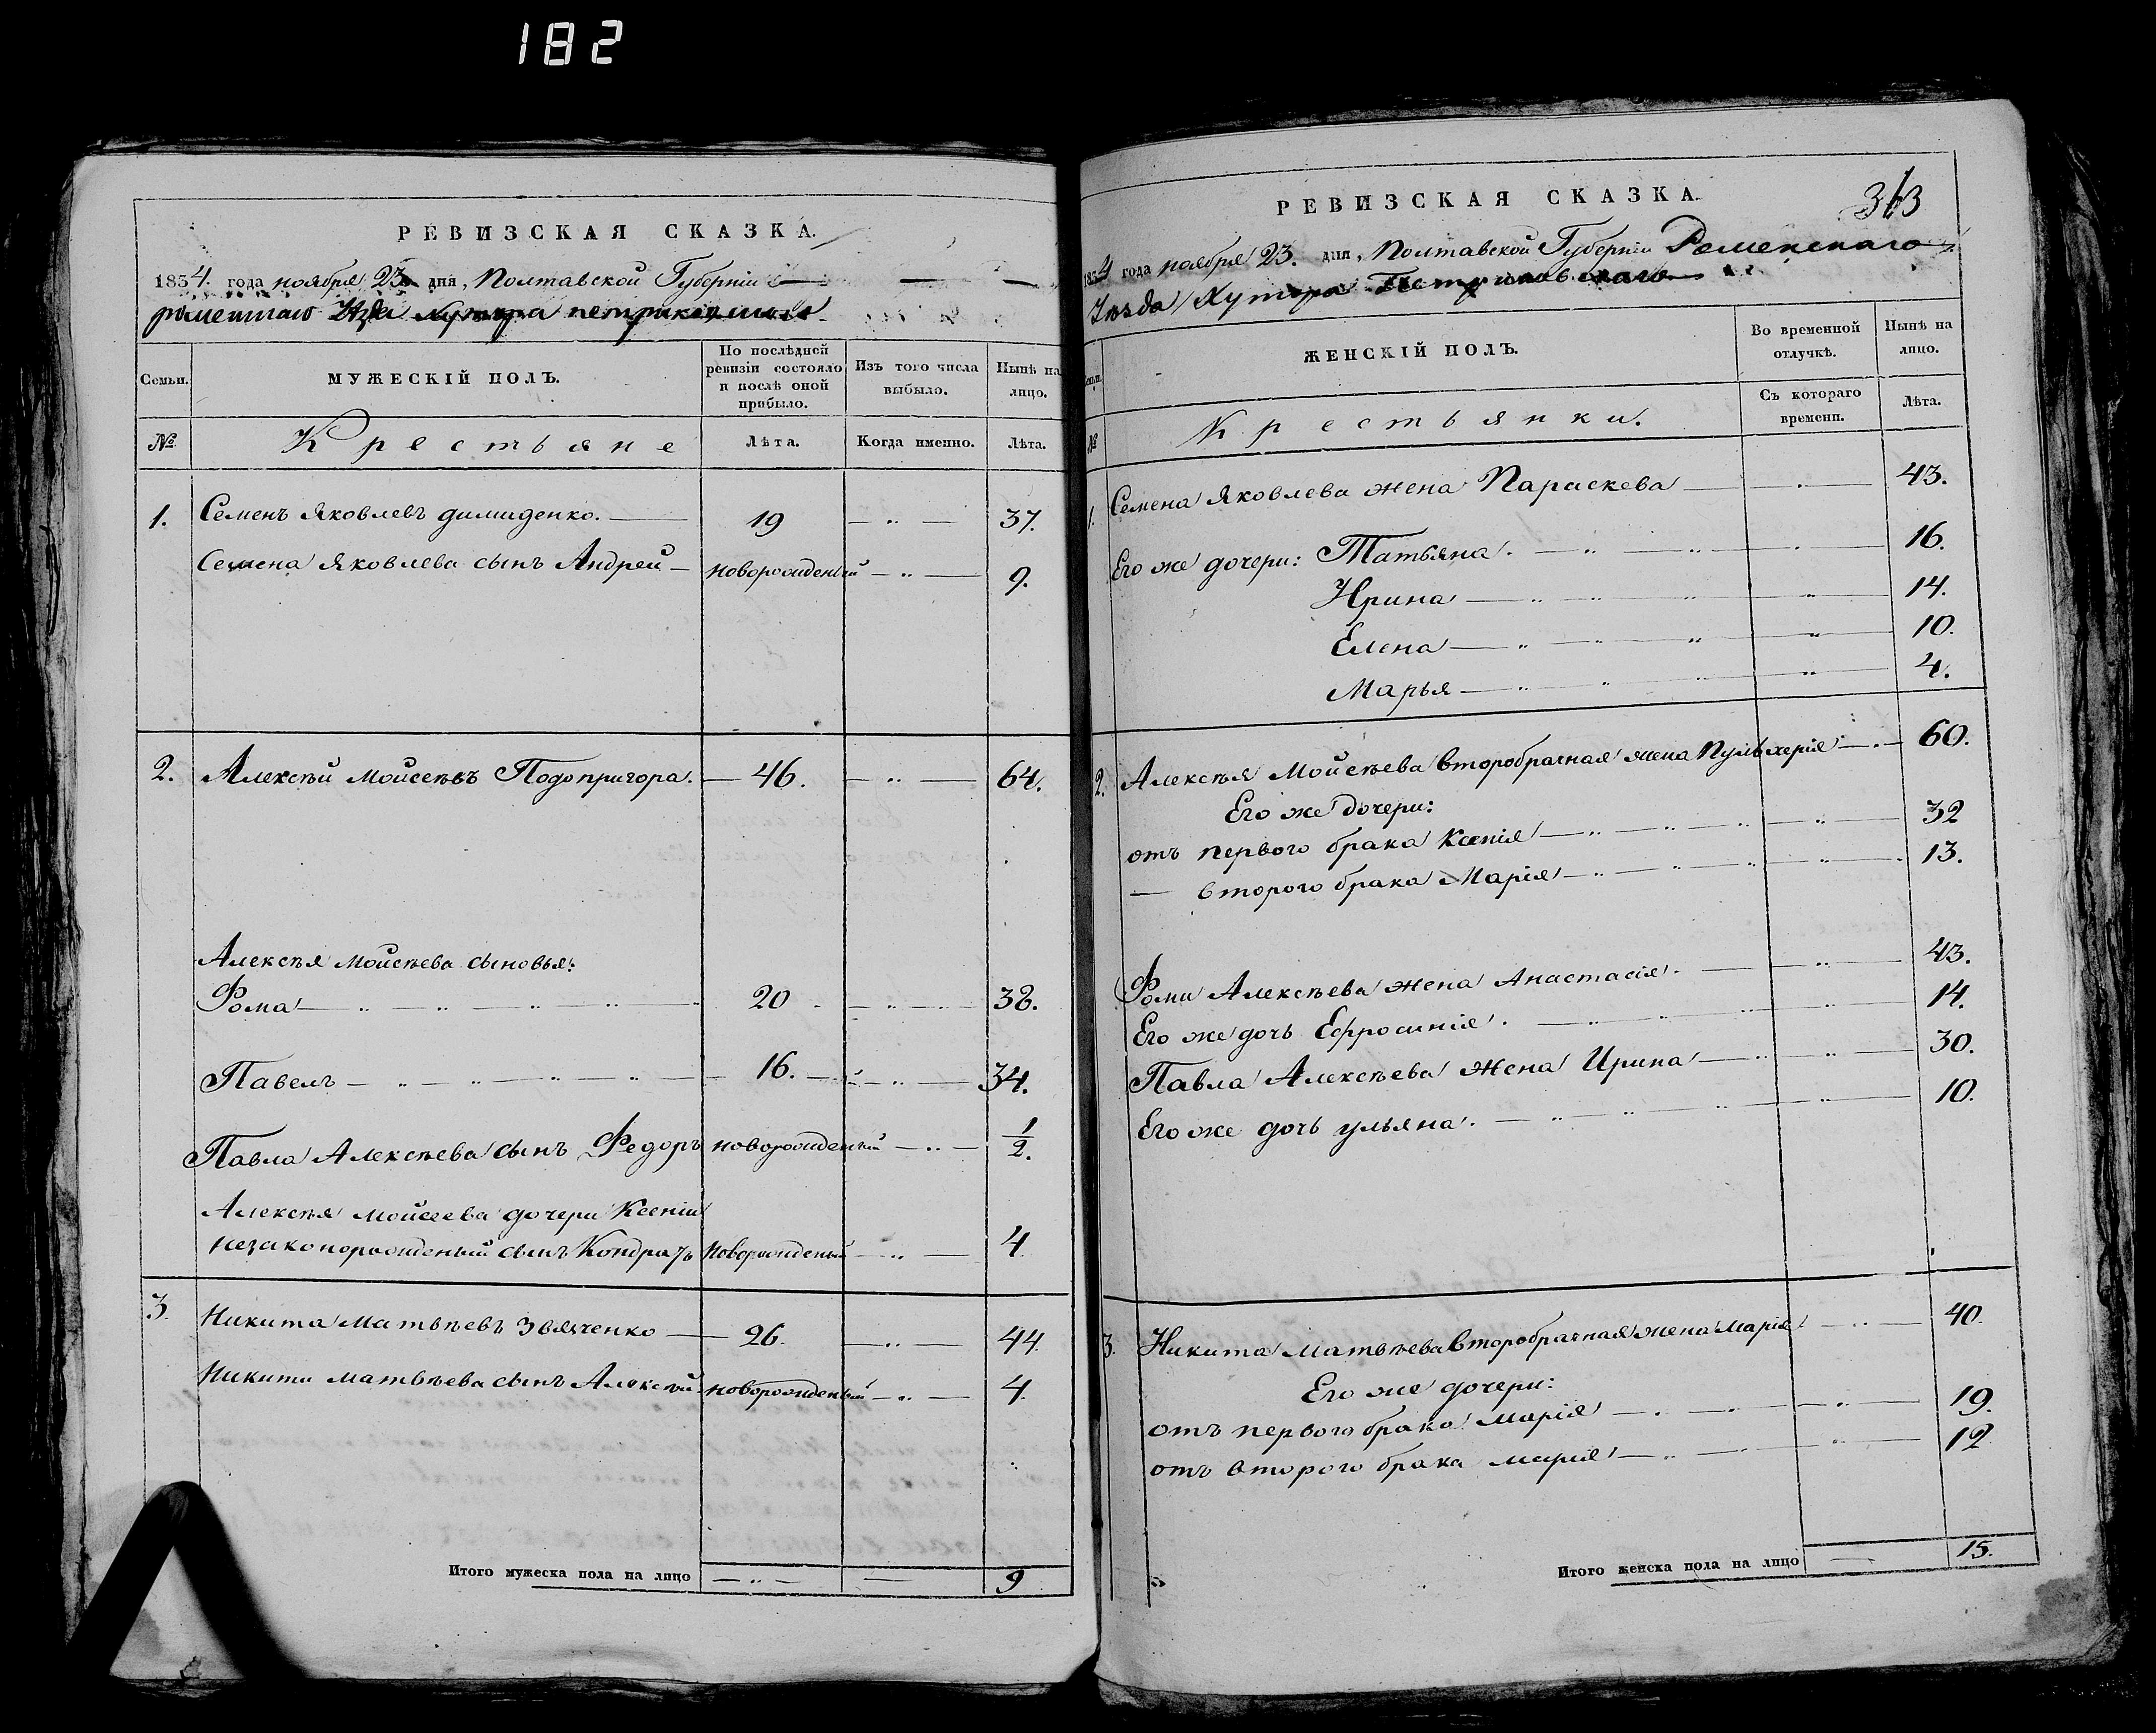 182
РЕВИЗСКАЯ СКАЗКА.
1854. года ноября 23 дня, Полтавской Губерніи
роменскаго Уѣзда хутора петриковскаго
Семьи.
МУЖЕСКІЙ ПОЛЪ.
По послѣдней ревизіи состояло и послѣ оной прибыло.
Изъ того числа выбыло.
Нынѣ на лицо.
№
Крестьяне
Лѣта.
Когда именно.
Лѣта.
1. Семенъ Яковлевъ димиденко. 19 37.
Семена Яковлева сынъ Андрей новорожденый 9.
2. Алексѣй Моисѣевъ Подопригора. 46. 64.
Алексѣя Моисѣева сыновья:
Фома 20 38.
Павелъ 16. 34.
Павла Алексѣева сынъ Федоръ новорожденый 1/2.
Алексѣя Моисеева дочери Ксеніи
незаконорожденый сынъ Кондратъ Новорожденый 4.
3. Никита Матвѣевъ Звяченко 26. 44.
Никити матвѣева сынъ Алексѣй новорожденый 4.
Итого мужеска пола на лицо 9
РЕВИЗСКАЯ СКАЗКА.
363
1854 года ноября 23. дня, Полтавской Губерніи Роменскаго
Уѣзда Хутора Петриковскаго
Семьи.
ЖЕНСКІЙ ПОЛЪ.
Во временной отлучкѣ.
Нынѣ на лицо.
№
Крестьянки.
Съ котораго времени.
Лѣта.
1. Семена Яковлева жена Параскева 43.
Его же дочери: Татьяна. 16.
Ирина 14.
Елена 10.
Марья 4.
2. Алексѣя Мойсѣева второбрачная жена Пульхерія 60.
Его же дочери:
отъ первого брака Ксенія 32
— второго брака Марія 13.
Фоми Алексѣева жена Анастасія. 43.
Его же дочь Ефросинія. 14.
Павла Алексѣева жена Ирина 30.
Его же дочь ульяна. 10.
3. Никита Матвѣева второбрачная жена Марія 40.
Его же дочери:
отъ первого брака Марія 19.
отъ второго брака мария 12
Итого женска пола на лицо 15.